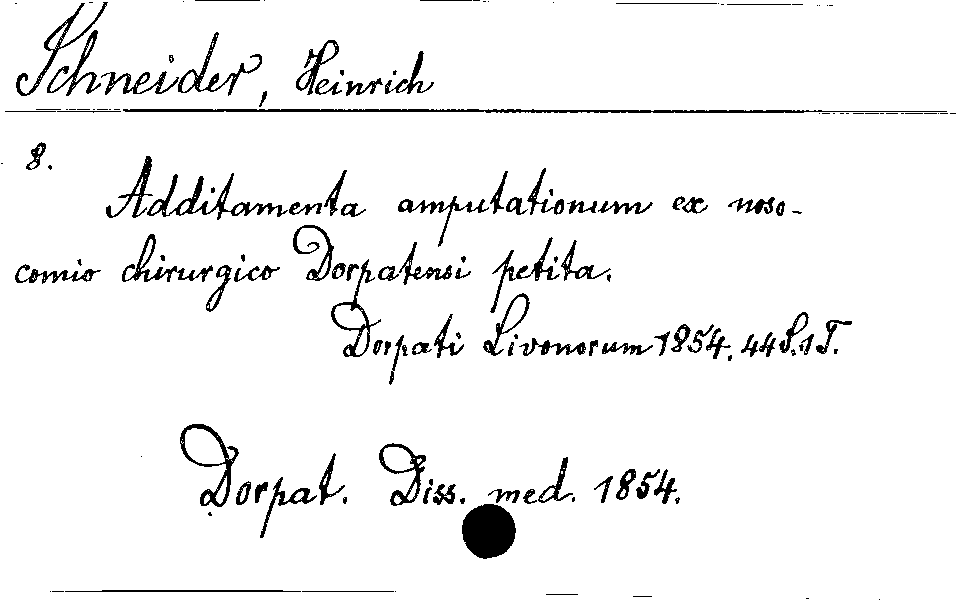 Schneider, Heinrich
8.
Additamenta amputationum ex noso-
comio chirurgico Dorpatensi petita.
Dorpati Livonorum 1854. 44 S. 1 T.
Dorpat. Diss. med. 1854.